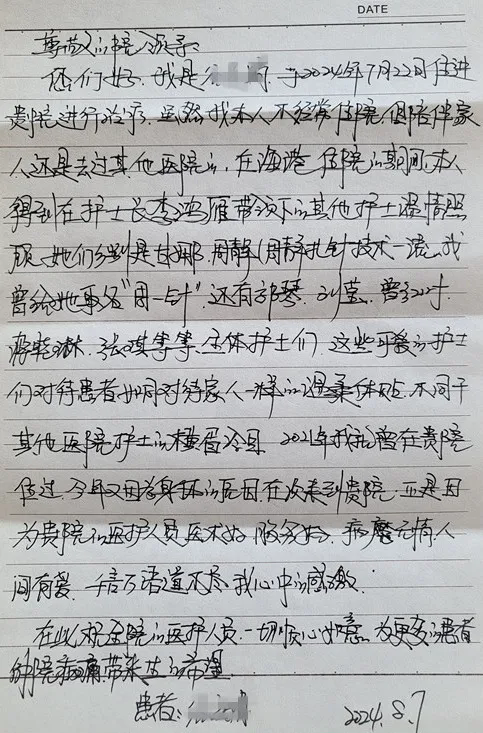 DATE
尊敬的院领导:
您们好。我是 于2024年7月22日住进
贵院进行治疗。虽然我本人不经常住院,但陪伴家
人还是去过其他医院的,在海港住院的期间,本人
得到在护士长李鸿雁带领下的其他护士温情照
顾、她们分别是 周静(周静扎针技术一流,我
曾给她取名"周一针",还有郭琴、刘莹、曾
琳、张琪等等,全体护士们,这些可爱的护士
们对待患者如同对待家人一样的温柔体贴,不同于
其他医院护士的横眉冷目,2021年我就曾在贵院
住过,今年又因为身体的原因,在次来到贵院,正是因
为贵院的医护人员医术好,服务好,病魔无情人
间有爱,千言万语道不尽我心中的感激。
在此,祝全院的医护人员一切顺心如意,为更多的患者
解除病痛带来生的希望
患者:
2024.8.7